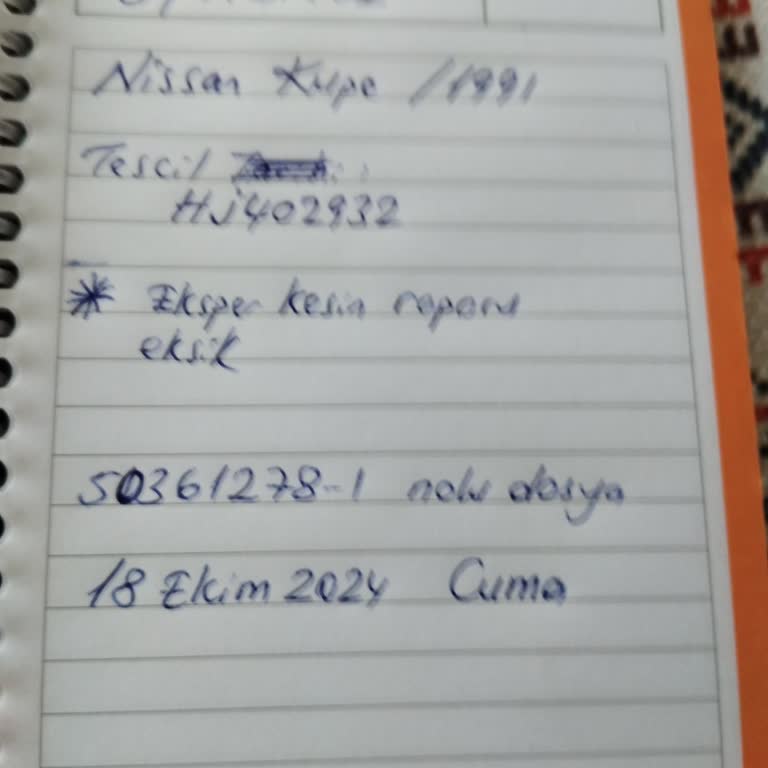 Nissan Kupe /1991
Tescil :
HJ402932
* Eksper kesin raporu
eksik
50361278-1 nolu dosya
18 Ekim 2024 Cuma